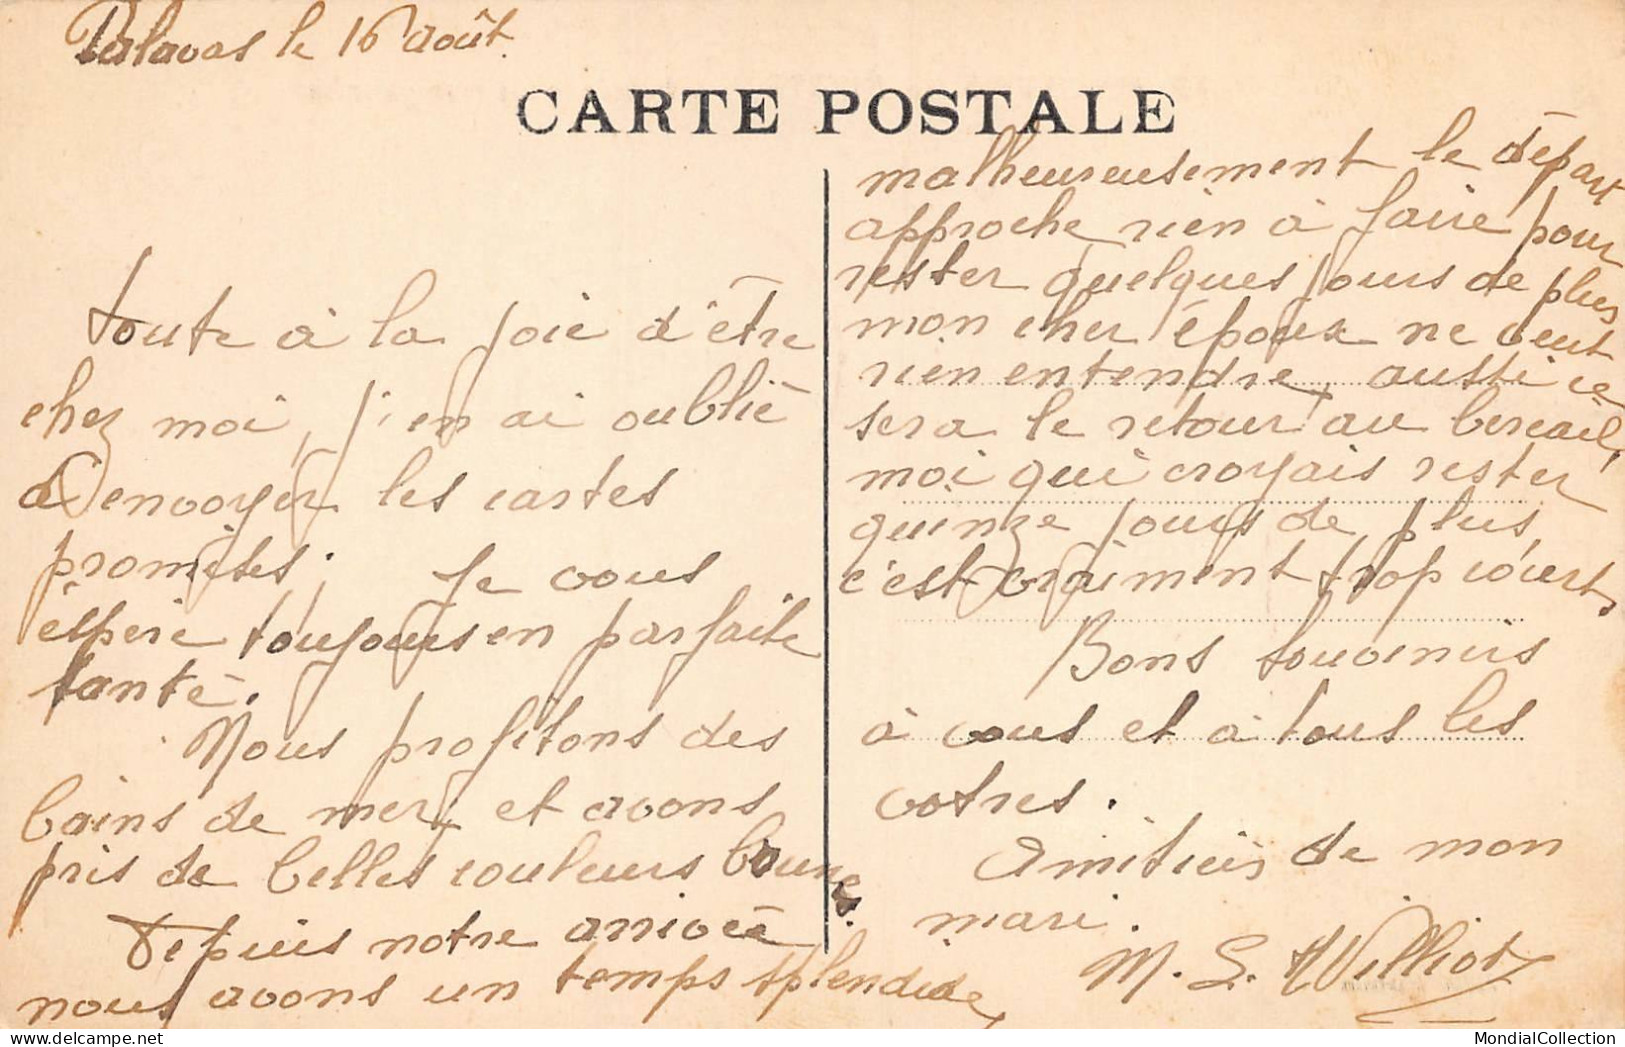 Palavas le 16 août.
CARTE POSTALE
toute à la joie d'être
chez moi, j'en ai oublié
d'envoyer les cartes
promises. Je vous
éspère toujours en parfaite
santé.
Nous profitons des
bains de mer, et avons
pris de belles couleurs brunes.
Depuis notre arrivée
nous avons un temps splendide,
malheureusement le départ
approche rien à faire pour
rester quelques jours de plus
mon cher époux ne veut
rien entendre, aussi ce
sera le retour au bercail,
moi qui croyais rester
quinze jours de plus,
c'est vraiment trop court.
Bons souvenirs
à vous et à tous les
votres.
Amitiés de mon
mari.
M. S. Williot
MondialCollection